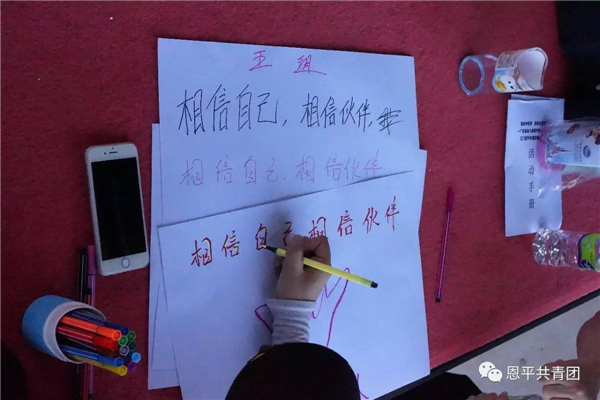 五组
相信自己，相信伙伴，
相信自己，相信伙伴
相信自己相信伙伴
活动手册
恩平共青团